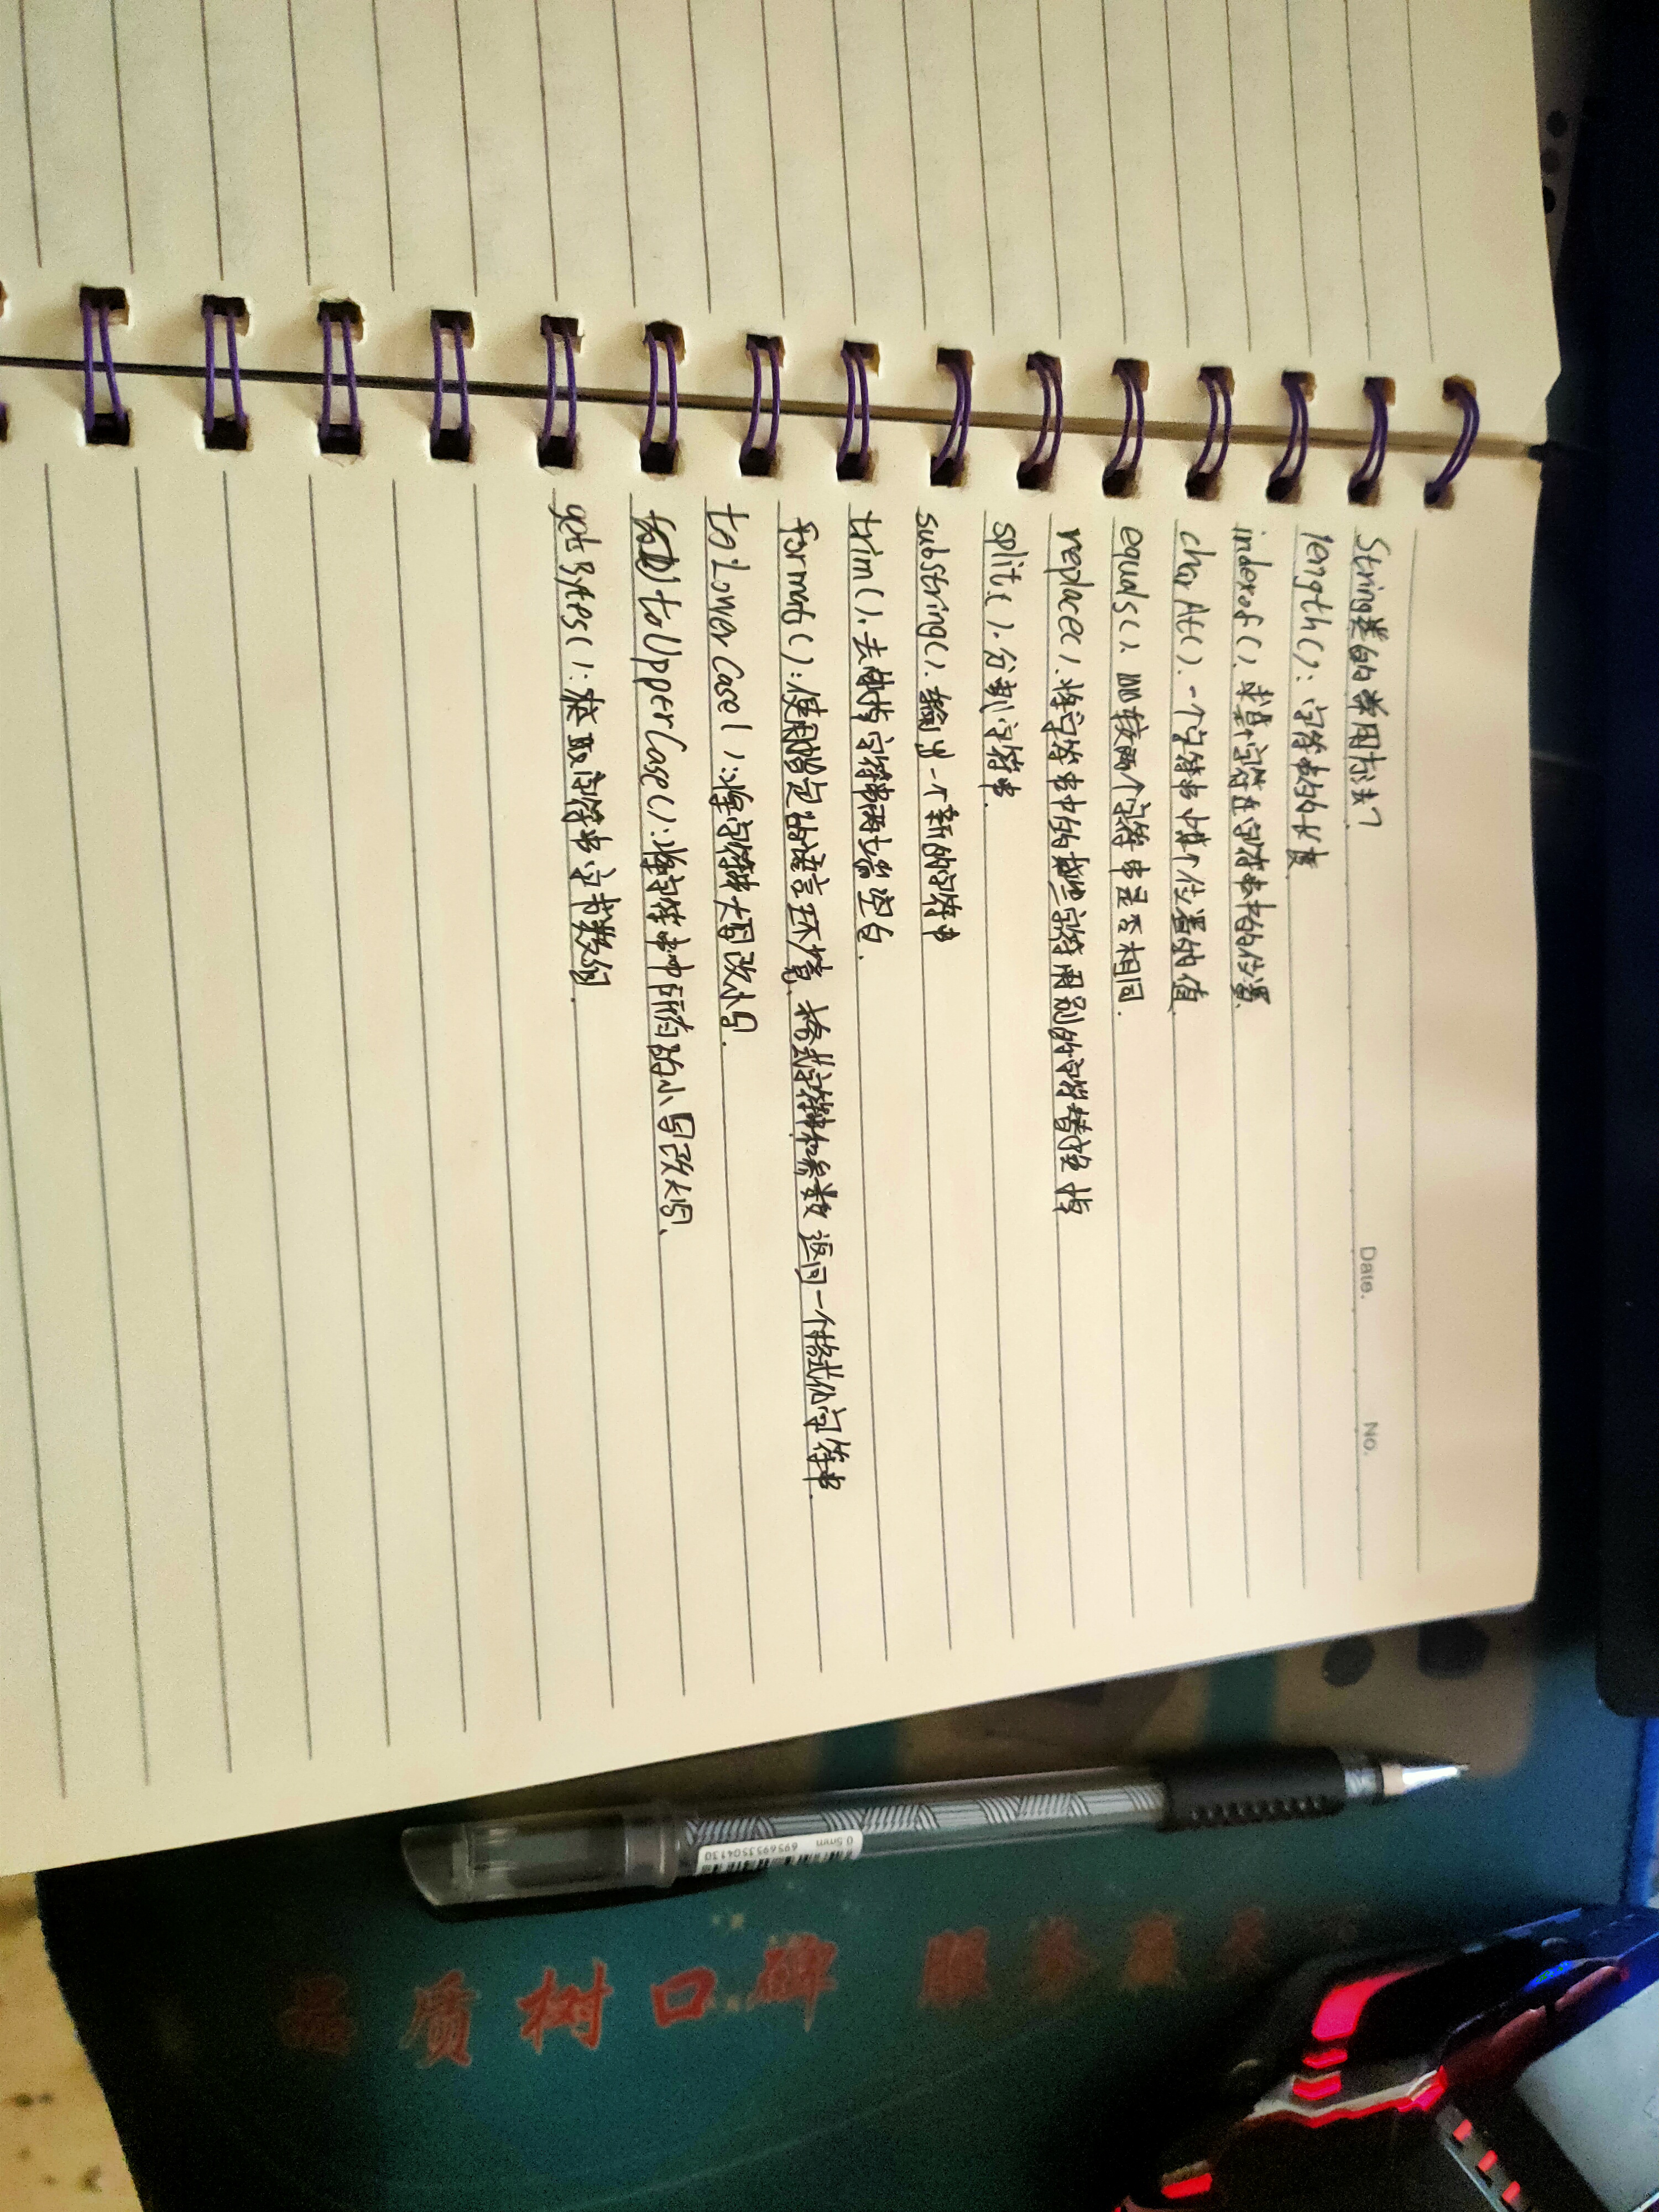 Date.
No.
String类的常用方法？
length(): 字符串的长度
indexof(). 求某个字符在字符串中的位置
charAt(). 一个字符串中某个位置的值
equals(). 比较两个字符串是否相同.
replace(). 将字符串中的某些字符用别的字符替换掉
split(). 分割字符串.
substring(). 输出一个新的字符串
trim(). 去掉字符串两端空白.
format(): 使用指定的语言环境. 格式字符串和参数返回一个格式化字符串.
toLowerCase(): 将字符串大写改小写.
toUpperCase(): 将字符串中所有的小写改大写.
getBytes(): 获取字符串字节数组.
0.5mm
6956953504130
品质树口碑 服务赢天